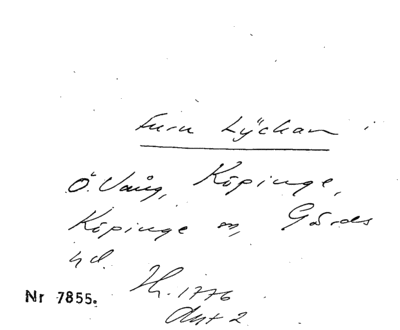 Furu Lyckan i
Ö. Vång, Köpinge,
Köpinge sn, Gärds
hd.
Nr 7855.
Hr. 1776
Akt 2